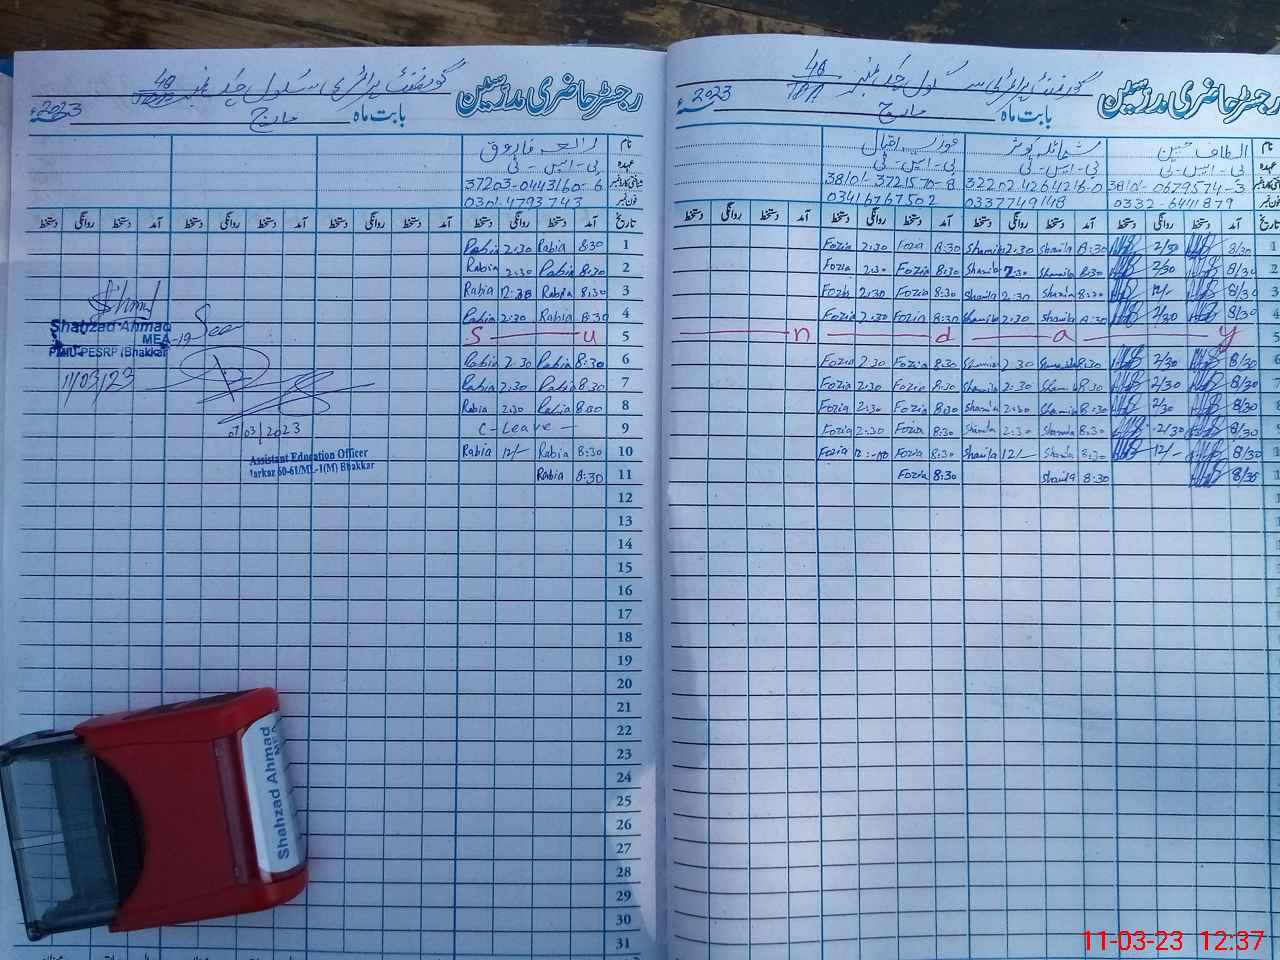 گورنمنٹ پرائمری سکول چک نمبر 48/TDA
رجسٹر حاضری مدرسین
بابت ماہ مارچ 2023ء
نام رابعہ فاروق
عہدہ پی-ایس-ٹی
شناختی کارڈ نمبر 37203-0443160-6
فون نمبر 0301-4793743
تاریخ آمد دستخط روانگی دستخط آمد دستخط روانگی دستخط آمد دستخط روانگی دستخط آمد دستخط روانگی دستخط
1 8:30 Rabia 2:30 Rabia
2 8:30 Rabia 2:30 Rabia
3 8:30 Rabia Rabia
4 8:30 Rabia 2:30 Rabia
5 S u
6 8:30 Rabia 2:30 Rabia
7 8:30 Rabia 2:30 Rabia
8 8:30 Rabia 2:30 Rabia
9 C-Leave —
10 8:30 Rabia 12/- Rabia
11 8:30 Rabia
12
13
14
15
16
17
18
19
20
21
22
23
24
25
26
27
28
29
30
31
Shahzad Ahmad
MEA-19 Seen
PMIU-PESRP (Bhakkar)
11/03/23
07/03/2023
Assistant Education Officer
Markaz 60-61/ML-1(M) Bhakkar
Shahzad Ahmad
MEA
گورنمنٹ پرائمری سکول چک نمبر 48/TDA
رجسٹر حاضری مدرسین
بابت ماہ مارچ 2023ء
نام الطاف حسین شمائلہ کوثر فوزیہ اقبال
عہدہ پی-ایس-ٹی پی-ایس-ٹی پی-ایس-ٹی
شناختی کارڈ نمبر 38101-0679574-3 32202-4264216-0 38101-3721570-8
فون نمبر 0332-6441879 0337749148 03416767502
تاریخ آمد دستخط روانگی دستخط آمد دستخط روانگی دستخط آمد دستخط روانگی دستخط آمد دستخط روانگی دستخط
1 8/30 2/30 8:30 Shamila 2:30 Shamila 8:30 Fozia 2:30 Fozia
2 8/30 2/30 8:30 Shamila 2:30 Shamila 8:30 Fozia 2:30 Fozia
3 8/30 12/- 8:30 Shamila 2:30 Shamila 8:30 Fozia 2:30 Fozia
4 8/30 2/30 8:30 Shamila 2:30 Shamila 8:30 Fozia 2:30 Fozia
5 n d a y
6 8/30 2/30 8:30 Shamila 2:30 Shamila 8:30 Fozia 2:30 Fozia
7 8/30 2/30 8:30 Shamila 2:30 Shamila 8:30 Fozia 2:30 Fozia
8 8/30 2/30 8:30 Shamila 2:30 Shamila 8:30 Fozia 2:30 Fozia
9 8/30 2/30 8:30 Shamila 2:30 Shamila 8:30 Fozia 2:30 Fozia
1 8/30 12/- 8:30 Shamila 12/- Shamila 8:30 Fozia Fozia
1 8/30 8:30 Shamila 8:30 Fozia
11-03-23 12:37